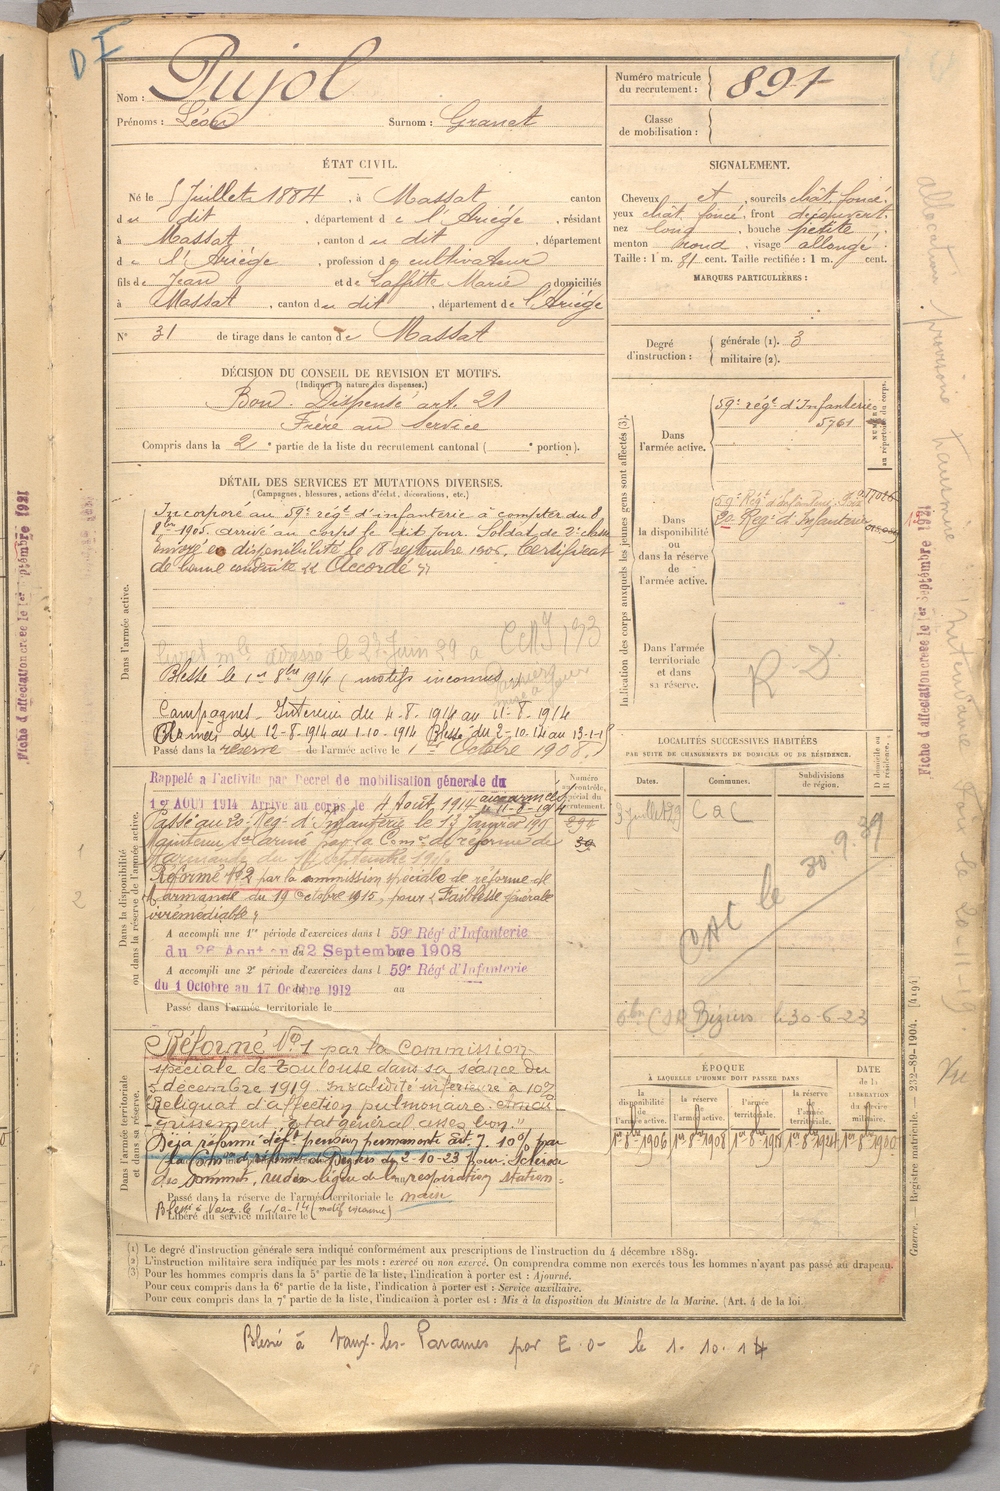 D I
Nom : Pujol
Prénoms : Léon Surnom : Granet
Numéro matricule du recrutement : 891
Classe de mobilisation :
ÉTAT CIVIL.
Né le 5 Juillet 1884, à Massat canton
du dit, département de l'Ariége, résidant
à Massat, canton du dit, département
de l'Ariége, profession de cultivateur
fils de Jean et de Laffitte Marie domiciliés
à Massat, canton du dit, département de l'Ariége
N° 31 de tirage dans le canton de Massat
SIGNALEMENT.
Cheveux et, sourcils chât. foncé.
yeux chât. foncé, front découvert.
nez long, bouche petite
menton rond, visage allongé.
Taille : 1 m. 51 cent. Taille rectifiée : 1 m. cent.
MARQUES PARTICULIÈRES :
Degré d'instruction : générale (1). 3
militaire (2).
DÉCISION DU CONSEIL DE REVISION ET MOTIFS.
(Indiquer la nature des dispenses.)
Bon. Dispensé art. 21
Frère au Service
Compris dans la 2e partie de la liste du recrutement cantonal ( e portion).
DÉTAIL DES SERVICES ET MUTATIONS DIVERSES.
(Campagnes, blessures, actions d'éclat, décorations, etc.)
Dans l'armée active.
Incorporé au 59e régt d'infanterie à compter du 8
8bre 1905. arrivé au corps le dit jour. Soldat de 2e classe
envoyé en disponibilité le 18 septembre 1906. Certificat
de bonne conduite "Accordé"
livret mle adressé le 27 Juin 29 a
Blessé le 1er 8bre 1914 (motifs inconnus
Campagnes - Intérieur du 4-8-1914 au 11-8-1914
Armées du 12-8-1914 au 1-10-1914 Blessé du 2-10-14 au 13-1-15
Passé dans la réserve de l'armée active le 1er Octobre 1908.
Dans la disponibilité ou dans la réserve de l'armée active.
Rappelé a l'activité par Decret de mobilisation génerale du
1er AOUT 1914 Arrivé au corps le 4 Août 1914 aux armées
Passé au 20e Reg. d'Infanterie le 13 Janvier
Maintenu Sce armé par la Comon de réforme de
Marmande du Septembre
Réformé N° 2 par la commission spéciale de réforme de
Marmande du 19 octobre 1915, pour "Faiblesse générale
irrémédiable"
A accompli une 1re période d'exercices dans l 59e Régt d'Infanterie
du 26 Aout au 22 Septembre 1908
A accompli une 2e période d'exercices dans l 59e Régt d'Infanterie
du 1 Octobre au 17 Octobre 1912 au
Passé dans l'armée territoriale le
Numéro au contrôle spécial du recrutement.
Dans l'armée territoriale et dans sa réserve.
Réformé N° 1 par la Commission
spéciale de Toulouse dans sa séance du
5 décembre 1919. Invalidité inférieure à 10%
Reliquat d'affection pulmonaire. amai-
grissement "état général assez bon."
Déjà réformé déft pension permanente art. 7. 10% par
la Comon de réforme de Béziers du 2-10-23 pour Sclérose
des sommets, rudesse légère de la respiration station-
naire
Passé dans la réserve de l'armée territoriale le
Blessé à Vaux le 1-10-14 (motif inconnu)
Libéré du service militaire le
Indication des corps auxquels les jeunes gens sont affectés (3).
Dans l'armée active.
59e rég. d'Infanterie
5761
NUMÉRO au répertoire du corps.
Dans la disponibilité ou dans la réserve de l'armée active.
59e Régt d'Infanterie
20 Reg. d'Infanterie
Dans l'armée territoriale et dans sa réserve.
R D
LOCALITÉS SUCCESSIVES HABITÉES
PAR SUITE DE CHANGEMENTS DE DOMICILE OU DE RÉSIDENCE.
Dates. Communes. Subdivisions de région. D domicile ou R résidence.
3 juillet 29 CaC
CAC le 30.9.39
Béziers le 30-6-23
ÉPOQUE
À LAQUELLE L'HOMME DOIT PASSER DANS
la disponibilité de l'armée active. la réserve de l'armée active. l'armée territoriale. la réserve de l'armée territoriale. DATE de la LIBÉRATION du service militaire.
1er 8bre 1906 1er 8bre 1908 1er 8bre 1918 1er 8bre 1924 1er 8bre 1930
(1) Le degré d'instruction générale sera indiqué conformément aux prescriptions de l'instruction du 4 décembre 1889.
(2) L'instruction militaire sera indiquée par les mots : exercé ou non exercé. On comprendra comme non exercés tous les hommes n'ayant pas passé au drapeau.
(3) Pour les hommes compris dans la 5e partie de la liste, l'indication à porter est : Ajourné.
Pour ceux compris dans la 6e partie de la liste, l'indication à porter est : Service auxiliaire.
Pour ceux compris dans la 7e partie de la liste, l'indication à porter est : Mis à la disposition du Ministre de la Marine. (Art. 4 de la loi
Blessé à Vaux-les-Parames par E. O- le 1. 10. 14
Guerre. — Registre matricule. — 232-89-1904. [4194]
Fiche d'affectation créée le 1er Septembre 1921
Fiche d'affectation créée le 1er Septembre 1921
allocation provisoire
le 20-11-19.
Vu
1
2